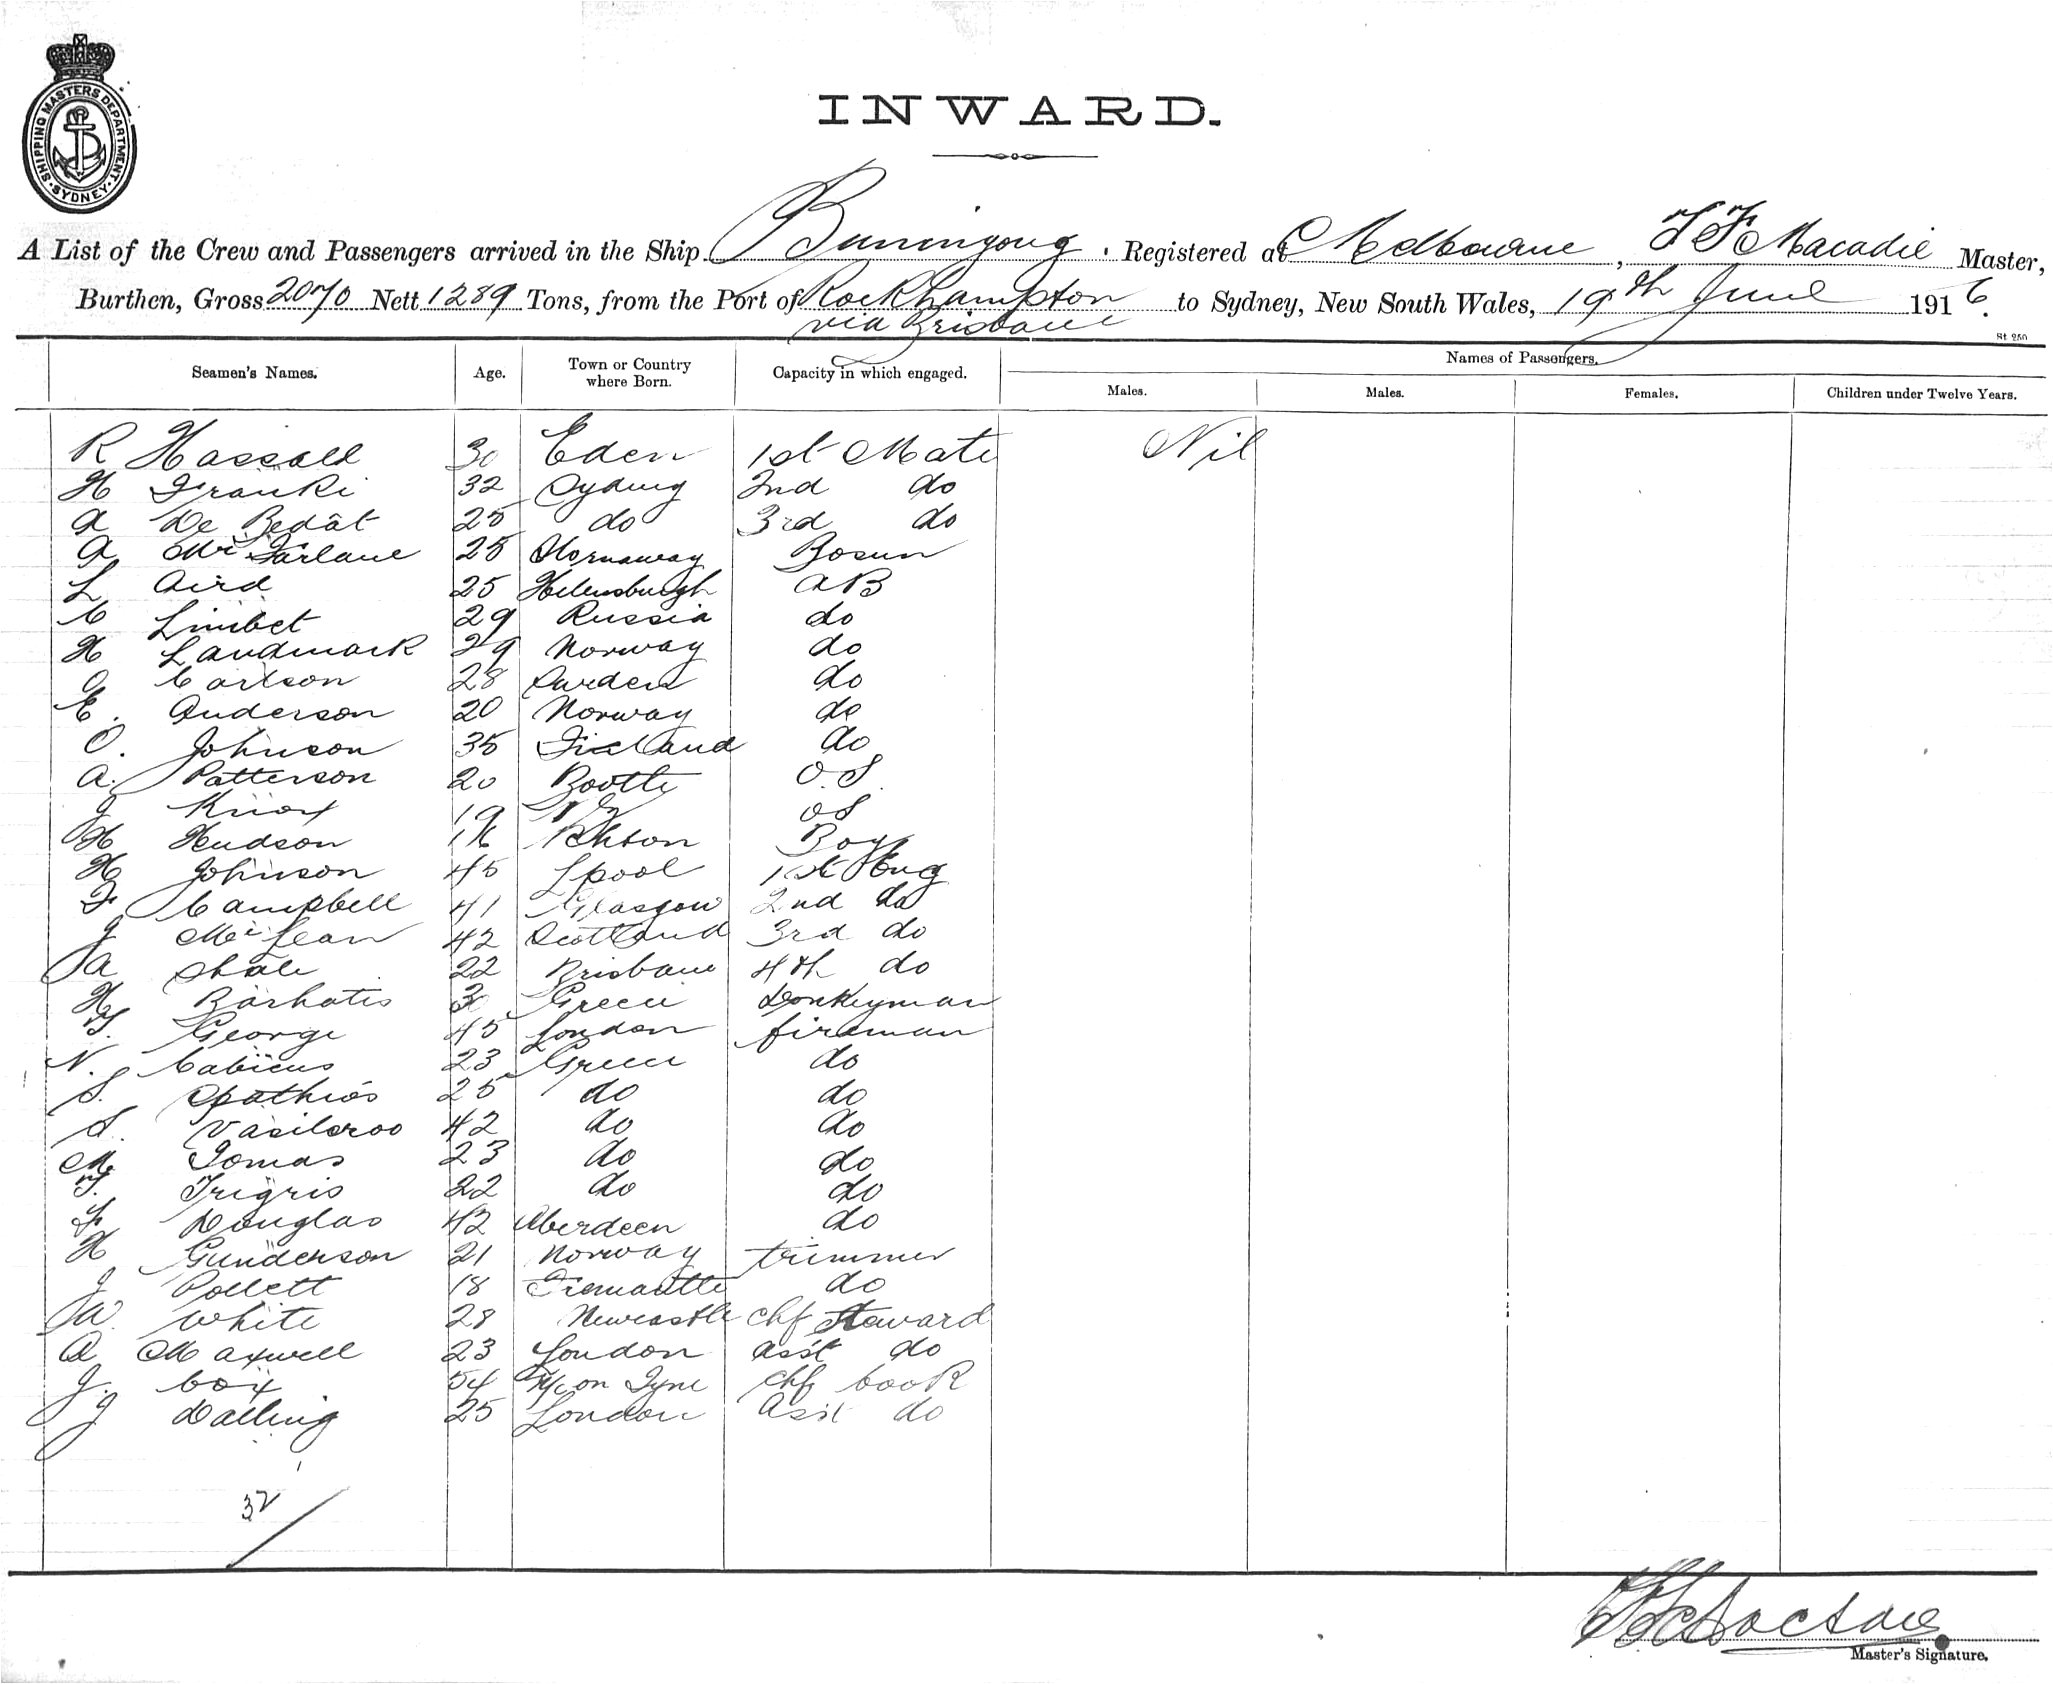 SHIPPING MASTERS DEPARTMENT · SYDNEY ·
INWARD.
A List of the Crew and Passengers arrived in the Ship Buningong. Registered at Melbourne, Macadie Master,
Burthen, Gross 2070 Nett 1289 Tons, from the Port of Rockhampton to Sydney, New South Wales, 19th June 1916.
via Brisbane
St 250
Seamen's Names. Age. Town or Country where Born. Capacity in which engaged. Names of Passengers.
Males. Males. Females. Children under Twelve Years.
R Hassall 30 Eden 1st Mate Nil
H Franki 32 Sydney 2nd do
A De Bedât 25 do 3rd do
A McFarlane 28 Stornaway Bosun
L Aird 25 Helensburgh AB
C Limbet 29 Russia do
H Landmark 29 Norway do
Carlson 28 Sweden do
E. Anderson 20 Norway do
O. Johnson 35 do
A. Patterson 20 Bootle O.S.
J Knox 19 NZ OS
H Hudson 16 Boy
H Johnson 45 Lpool 1st Eng
F Campbell 41 Glasgow 2nd do
J McLean 42 Scotland 3rd do
A Shale 22 Brisbane 4th do
H Barhatis Greece Donkeyman
George 45 London fireman
N. Cabicus 23 Greece do
S. Spathios 25 do do
S. 42 do do
M Tomas 23 do do
T. Trigris 22 do do
F Douglas 42 Aberdeen do
H Gunderson 21 Norway trimmer
J Pollett 18 Fremantle do
W. White 28 Newcastle chf Steward
A Maxwell 23 London asst do
J. Cox 54 N/c on Tyne chf Cook
J Dalling 25 London Asst do
32
Master's Signature.